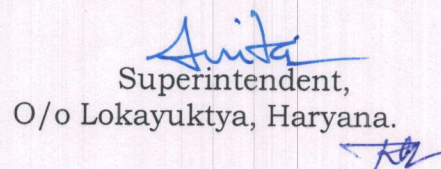 Anita
Superintendent,
O/o Lokayuktya, Haryana.